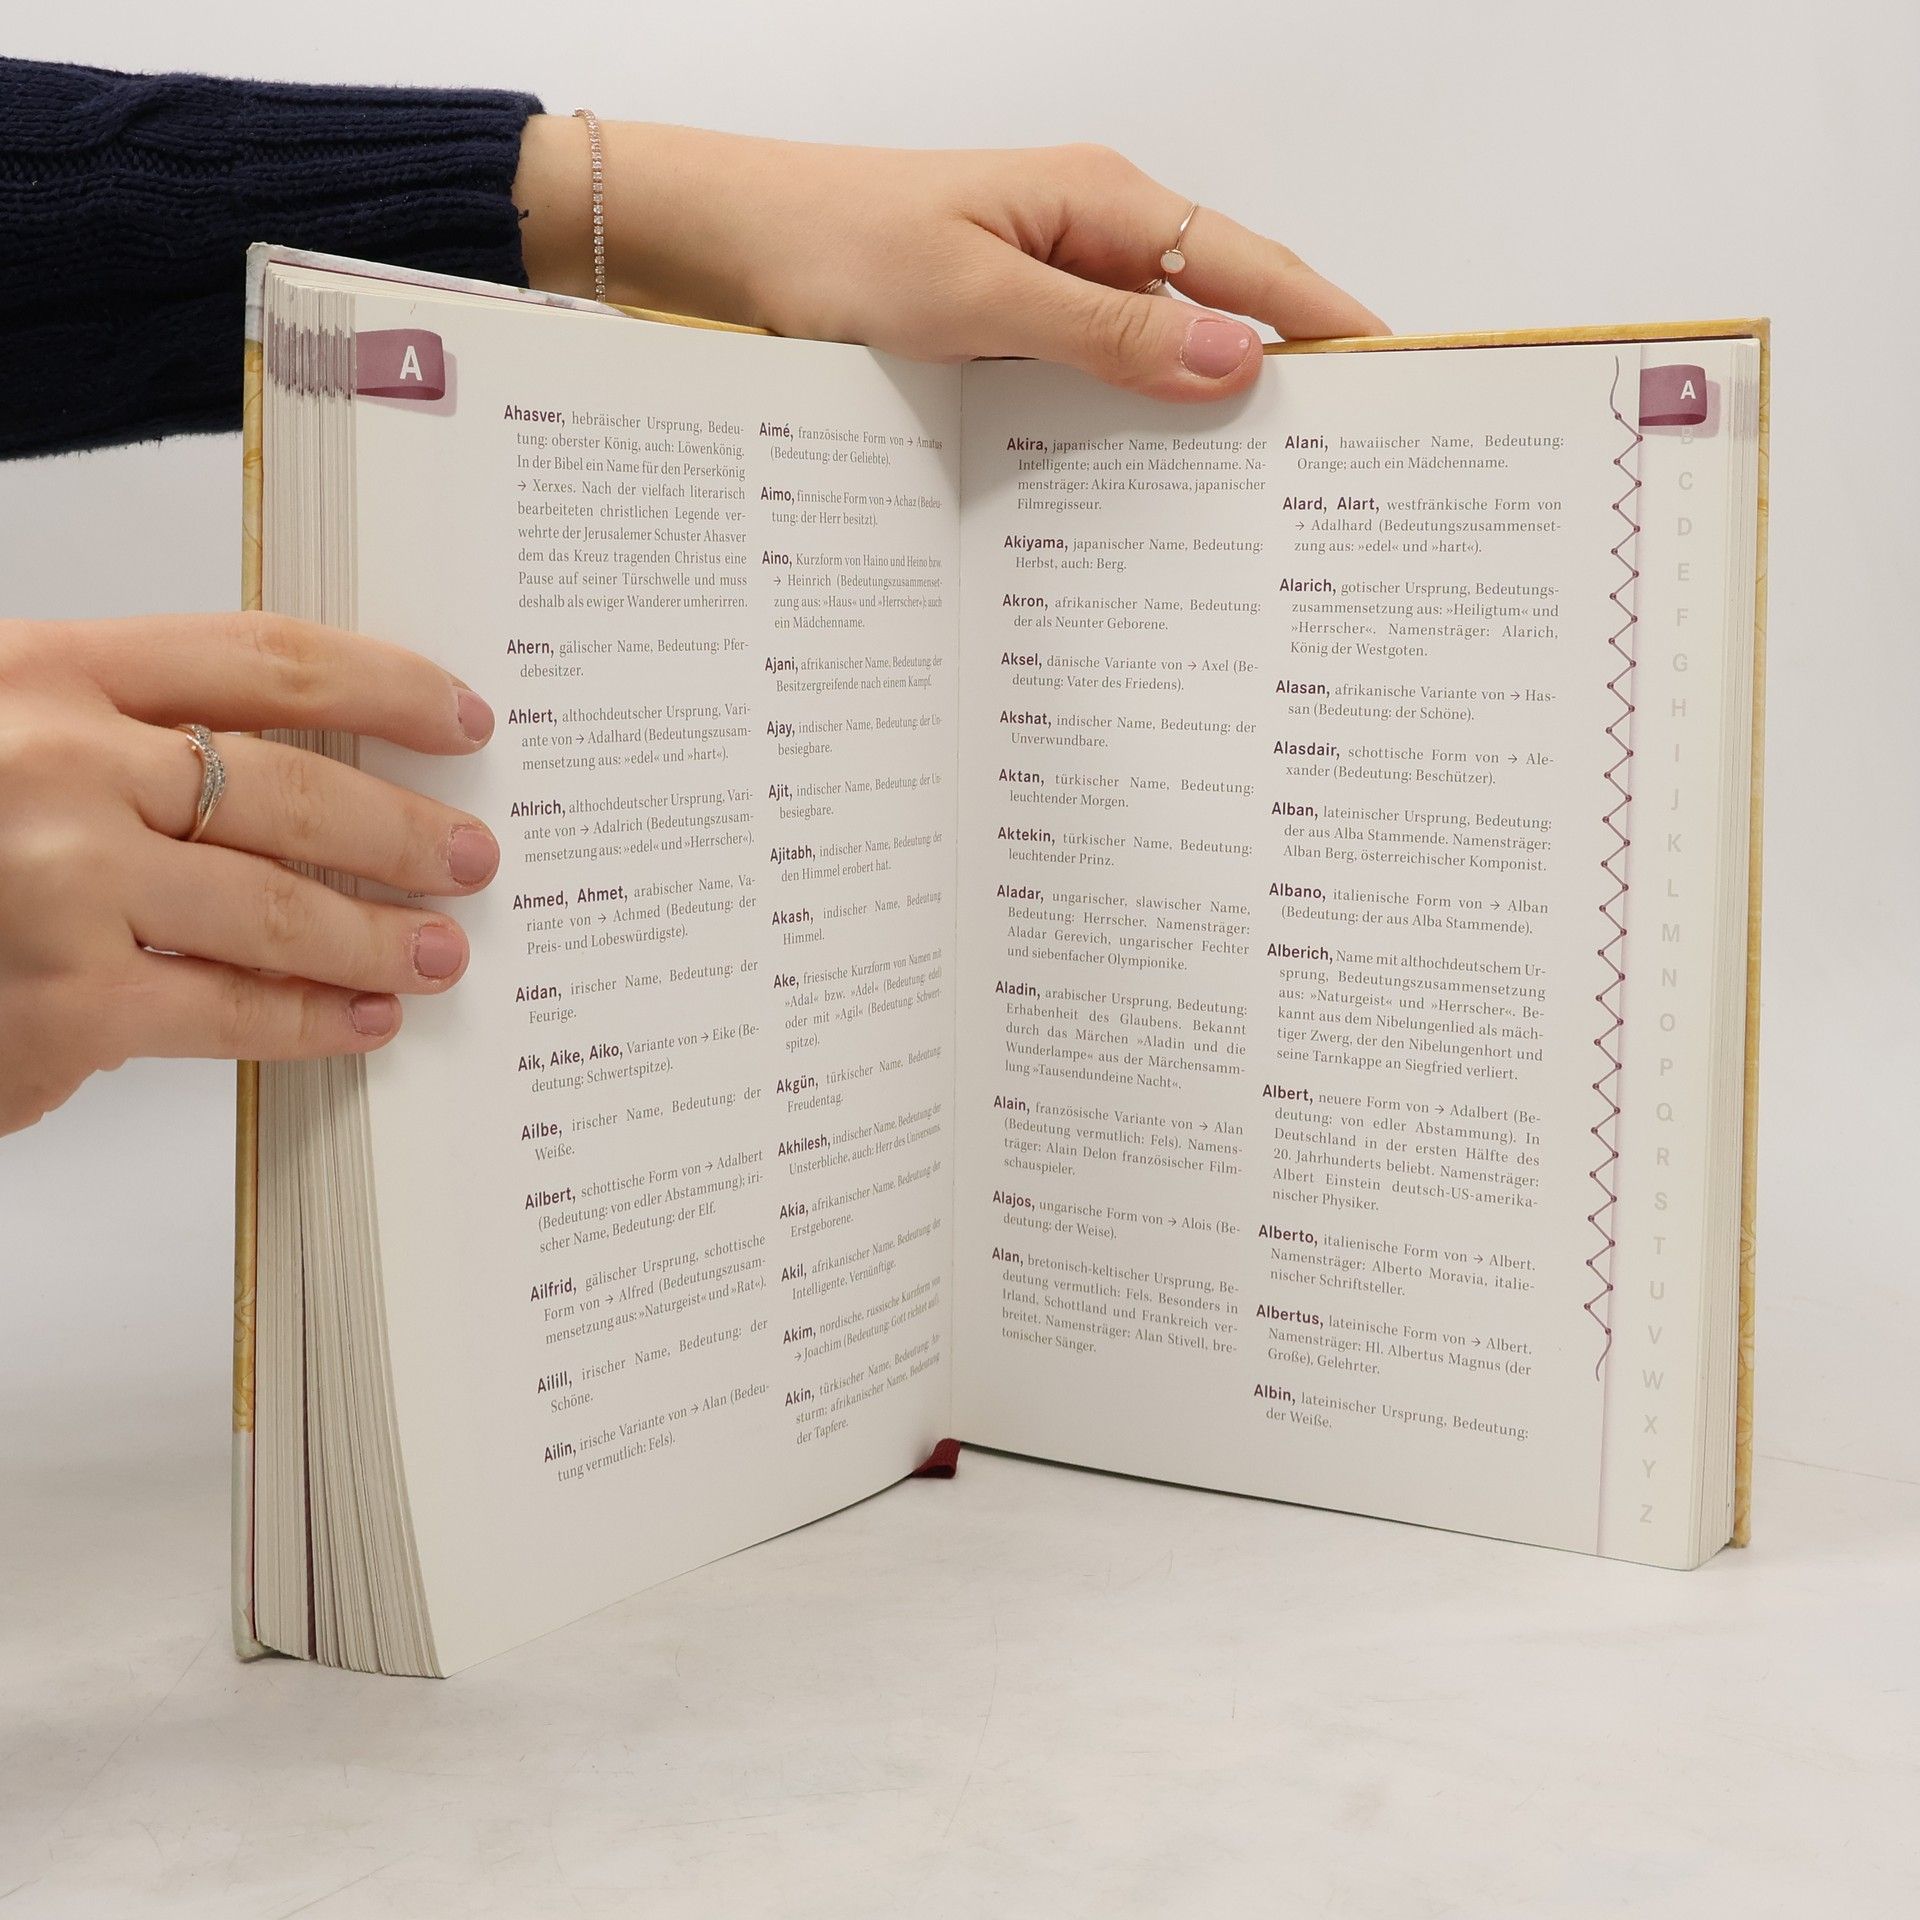 A
Ahasver, hebräischer Ursprung, Bedeu-
tung: oberster König, auch: Löwenkönig.
In der Bibel ein Name für den Perserkönig
→ Xerxes. Nach der vielfach literarisch
bearbeiteten christlichen Legende ver-
wehrte der Jerusalemer Schuster Ahasver
dem das Kreuz tragenden Christus eine
Pause auf seiner Türschwelle und muss
deshalb als ewiger Wanderer umherirren.
Ahern, gälischer Name, Bedeutung: Pfer-
debesitzer.
Ahlert, althochdeutscher Ursprung, Vari-
ante von → Adalhard (Bedeutungszusam-
mensetzung aus: »edel« und »hart«).
Ahlrich, althochdeutscher Ursprung, Vari-
ante von → Adalrich (Bedeutungszusam-
mensetzung aus: »edel« und »Herrscher«).
Ahmed, Ahmet, arabischer Name, Va-
riante von → Achmed (Bedeutung: der
Preis- und Lobeswürdigste).
Aidan, irischer Name, Bedeutung: der
Feurige.
Aik, Aike, Aiko, Variante von → Eike (Be-
deutung: Schwertspitze).
Ailbe, irischer Name, Bedeutung: der
Weiße.
Ailbert, schottische Form von → Adalbert
(Bedeutung: von edler Abstammung); iri-
scher Name, Bedeutung: der Elf.
Ailfrid, gälischer Ursprung, schottische
Form von → Alfred (Bedeutungszusam-
mensetzung aus: »Naturgeist« und »Rat«).
Ailill, irischer Name, Bedeutung: der
Schöne.
Ailin, irische Variante von → Alan (Bedeu-
tung vermutlich: Fels).
Aimé, französische Form von → Amatus
(Bedeutung: der Geliebte).
Aimo, finnische Form von → Achaz (Bedeu-
tung: der Herr besitzt).
Aino, Kurzform von Haino und Heino bzw.
→ Heinrich (Bedeutungszusammenset-
zung aus: »Haus« und »Herrscher«); auch
ein Mädchenname.
Ajani, afrikanischer Name, Bedeutung: der
Besitzergreifende nach einem Kampf.
Ajay, indischer Name, Bedeutung: der Un-
besiegbare.
Ajit, indischer Name, Bedeutung: der Un-
besiegbare.
Ajitabh, indischer Name, Bedeutung: der
den Himmel erobert hat.
Akash, indischer Name, Bedeutung:
Himmel.
Ake, friesische Kurzform von Namen mit
»Adal« bzw. »Adel« (Bedeutung: edel)
oder mit »Agil« (Bedeutung: Schwert-
spitze).
Akgün, türkischer Name, Bedeutung:
Freudentag.
Akhilesh, indischer Name, Bedeutung: der
Unsterbliche, auch: Herr des Universums.
Akia, afrikanischer Name, Bedeutung: der
Erstgeborene.
Akil, afrikanischer Name, Bedeutung: der
Intelligente, Vernünftige.
Akim, nordische, russische Kurzform von
→ Joachim (Bedeutung: Gott richtet auf).
Akin, türkischer Name, Bedeutung: An-
sturm; afrikanischer Name, Bedeutung:
der Tapfere.
Akira, japanischer Name, Bedeutung: der
Intelligente; auch ein Mädchenname. Na-
mensträger: Akira Kurosawa, japanischer
Filmregisseur.
Akiyama, japanischer Name, Bedeutung:
Herbst, auch: Berg.
Akron, afrikanischer Name, Bedeutung:
der als Neunter Geborene.
Aksel, dänische Variante von → Axel (Be-
deutung: Vater des Friedens).
Akshat, indischer Name, Bedeutung: der
Unverwundbare.
Aktan, türkischer Name, Bedeutung:
leuchtender Morgen.
Aktekin, türkischer Name, Bedeutung:
leuchtender Prinz.
Aladar, ungarischer, slawischer Name,
Bedeutung: Herrscher. Namensträger:
Aladar Gerevich, ungarischer Fechter
und siebenfacher Olympionike.
Aladin, arabischer Ursprung, Bedeutung:
Erhabenheit des Glaubens. Bekannt
durch das Märchen »Aladin und die
Wunderlampe« aus der Märchensamm-
lung »Tausendundeine Nacht«.
Alain, französische Variante von → Alan
(Bedeutung vermutlich: Fels). Namens-
träger: Alain Delon französischer Film-
schauspieler.
Alajos, ungarische Form von → Alois (Be-
deutung: der Weise).
Alan, bretonisch-keltischer Ursprung, Be-
deutung vermutlich: Fels. Besonders in
Irland, Schottland und Frankreich ver-
breitet. Namensträger: Alan Stivell, bre-
tonischer Sänger.
Alani, hawaiischer Name, Bedeutung:
Orange; auch ein Mädchenname.
Alard, Alart, westfränkische Form von
→ Adalhard (Bedeutungszusammenset-
zung aus: »edel« und »hart«).
Alarich, gotischer Ursprung, Bedeutungs-
zusammensetzung aus: »Heiligtum« und
»Herrscher«. Namensträger: Alarich,
König der Westgoten.
Alasan, afrikanische Variante von → Has-
san (Bedeutung: der Schöne).
Alasdair, schottische Form von → Ale-
xander (Bedeutung: Beschützer).
Alban, lateinischer Ursprung, Bedeutung:
der aus Alba Stammende. Namensträger:
Alban Berg, österreichischer Komponist.
Albano, italienische Form von → Alban
(Bedeutung: der aus Alba Stammende).
Alberich, Name mit althochdeutschem Ur-
sprung, Bedeutungszusammensetzung
aus: »Naturgeist« und »Herrscher«. Be-
kannt aus dem Nibelungenlied als mäch-
tiger Zwerg, der den Nibelungenhort und
seine Tarnkappe an Siegfried verliert.
Albert, neuere Form von → Adalbert (Be-
deutung: von edler Abstammung). In
Deutschland in der ersten Hälfte des
20. Jahrhunderts beliebt. Namensträger:
Albert Einstein deutsch-US-amerika-
nischer Physiker.
Alberto, italienische Form von → Albert.
Namensträger: Alberto Moravia, italie-
nischer Schriftsteller.
Albertus, lateinische Form von → Albert.
Namensträger: Hl. Albertus Magnus (der
Große), Gelehrter.
Albin, lateinischer Ursprung, Bedeutung:
der Weiße.
A
B
C
D
E
F
G
H
I
J
K
L
M
N
O
P
Q
R
S
T
U
V
W
X
Y
Z